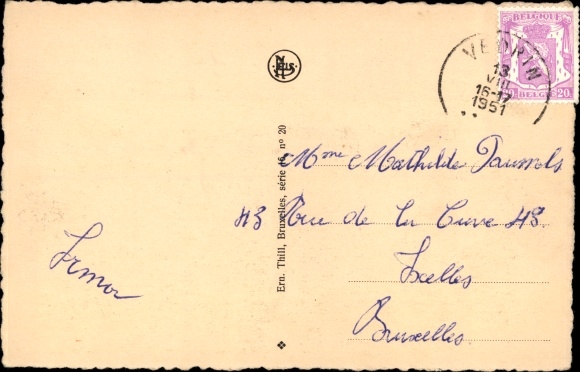 BELGIQUE
20c
BELGIE
20c
VEDRIN
13
VIII
16-17
1951
Nels
Ern. Thill, Bruxelles, série 16, nº 20
Mme Mathilde
43 Rue de la Cuve 43
Ixelles
Bruxelles
Irma